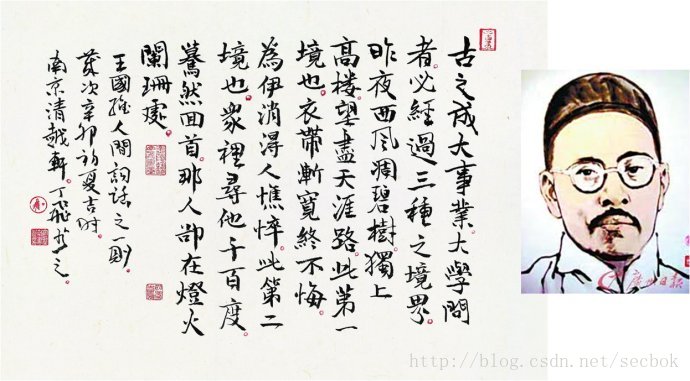 古之成大事業。大學問
者。必經過三種之境界。
昨夜西风凋碧樹。獨上
高楼。望盡天涯路。此第一
境也。衣帶漸寬終不悔。
為伊消得人憔悴。此第二
境也。衆裡尋他千百度。
驀然回首。那人卻在燈火
闌珊處。
王國維人間詞話之一則。
歲次辛卯初夏吉时
南京清越軒丁飛書之。
廣州日報
http://blog.csdn.net/secbok